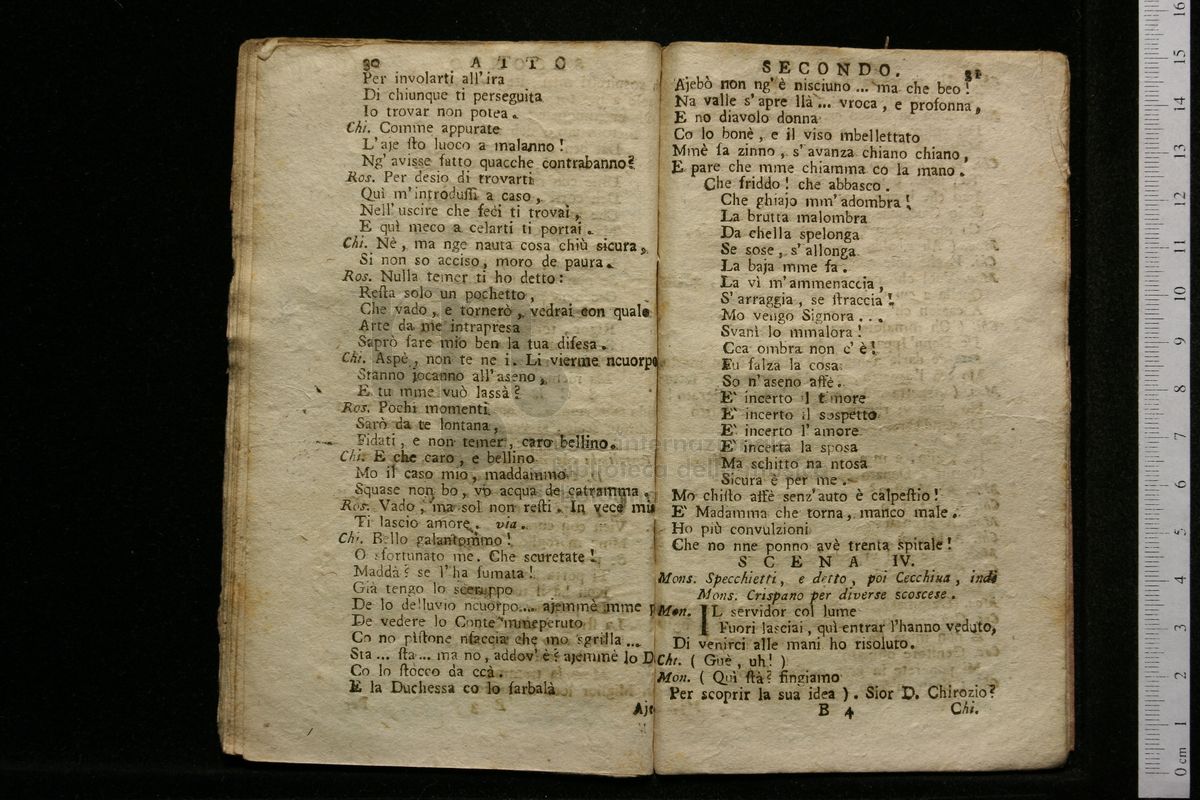 30 ATTO
Per involarti all' ira
Di chiunque ti perseguita
Io trovar non potea.
Chi. Comme appurate
L'aje sto luoco a malanno!
Ng' avisse fatto quacche contrabanno?
Ros. Per desio di trovarti
Quì m'introdussi a caso,
Nell' uscire che feci ti trovai,
E quì meco a celarti ti portai.
Chi. Nè, ma nge nauta cosa chiù sicura,
Si non so acciso, moro de paura.
Ros. Nulla temer ti ho detto:
Resta solo un pochetto,
Che vado, e tornerò, vedrai con quale
Arte da me intrapresa
Saprò fare mio ben la tua difesa.
Chi. Aspè, non te ne i. Li vierme ncuorpo
Stanno jocanno all' aseno,
E tu mme vuò lassà?
Ros. Pochi momenti
Sarò da te lontana,
Fidati, e non temer, caro bellino.
Chi. E che caro, e bellino
Mo il caso mio, maddammo
Squase non bo, vo acqua de catramma.
Ros. Vado, ma sol non resti. In vece mia
Ti lascio amore. via.
Chi. Bello galantommo!
O sfortunato me. Che scuretate!
Maddà? se l'ha fumata!
Già tengo lo sceruppo
De lo delluvio ncuorpo... ajemmè mme p
De vedere lo Conte mmeperuto
Co no pistone nfaccia che mo sgrilla ...
Sta ... sta ... ma no, addov' è? ajemmè lo D
Co lo stocco da ccà.
E la Duchessa co lo farbalà
Aje
SECONDO. 31
Ajebò non ng' è nisciuno ... ma che beo!
Na valle s' apre llà ... vroca, e profonna,
E no diavolo donna
Co lo bonè, e il viso mbellettato
Mmè fa zinno, s' avanza chiano chiano,
E pare che mme chiamma co la mano.
Che friddo! che abbasco.
Che ghiajo mm' adombra!
La brutta malombra
Da chella spelonga
Se sose, s' allonga
La baja mme fa.
La vì m'ammenaccia,
S' arraggia, se straccia!
Mo vengo Signora...
Svanì lo mmalora!
Cca ombra non c' è!
Fu falza la cosa
So n'aseno affè.
E' incerto il timore
E' incerto il sospetto
E' incerto l' amore
E' incerta la sposa
Ma schitto na ntosa
Sicura è per me.
Mo chisto affè senz'auto è calpestio!
E' Madamma che torna, manco male.
Ho più convulzioni
Che no nne ponno avè trenta spitale!
SCENA IV.
Mons. Specchietti, e detto, poi Cecchina, indi
Mons. Crispano per diverse scoscese.
Mon. IL servidor col lume
Fuori lasciai, quì entrar l'hanno veduto,
Di venirci alle mani ho risoluto.
Chi. ( Guè, uh! )
Mon. ( Quì stà? fingiamo
Per scoprir la sua idea ). Sior D. Chirozio?
B 4 Chi.